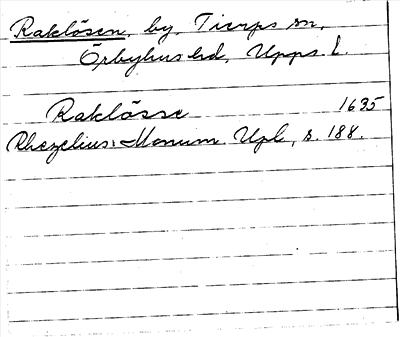 Raklösen, by, Tierps sn,
Örbyhus hd, Upps. l.
Raklösse 1635
Rhezelius: Monum. Upl., s. 188.